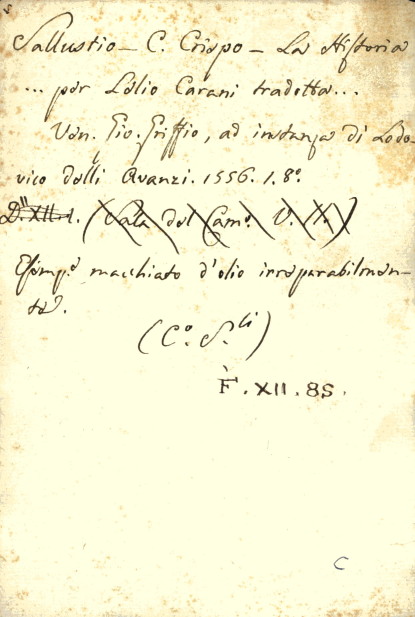 Sallustio – C. Crispo – La Historia
... per Lelio Carani tradotta...
Ven. Gio. Griffio, ad instanza di Lodo-
vico delli Avanzi. 1556. 1. 8º
D. XII. 1. (Sala del Camº. V. X.)
Esempº macchiato d'olio irreparabilmen-
te.
(Cº. S.li)
F. XII. 85.
C